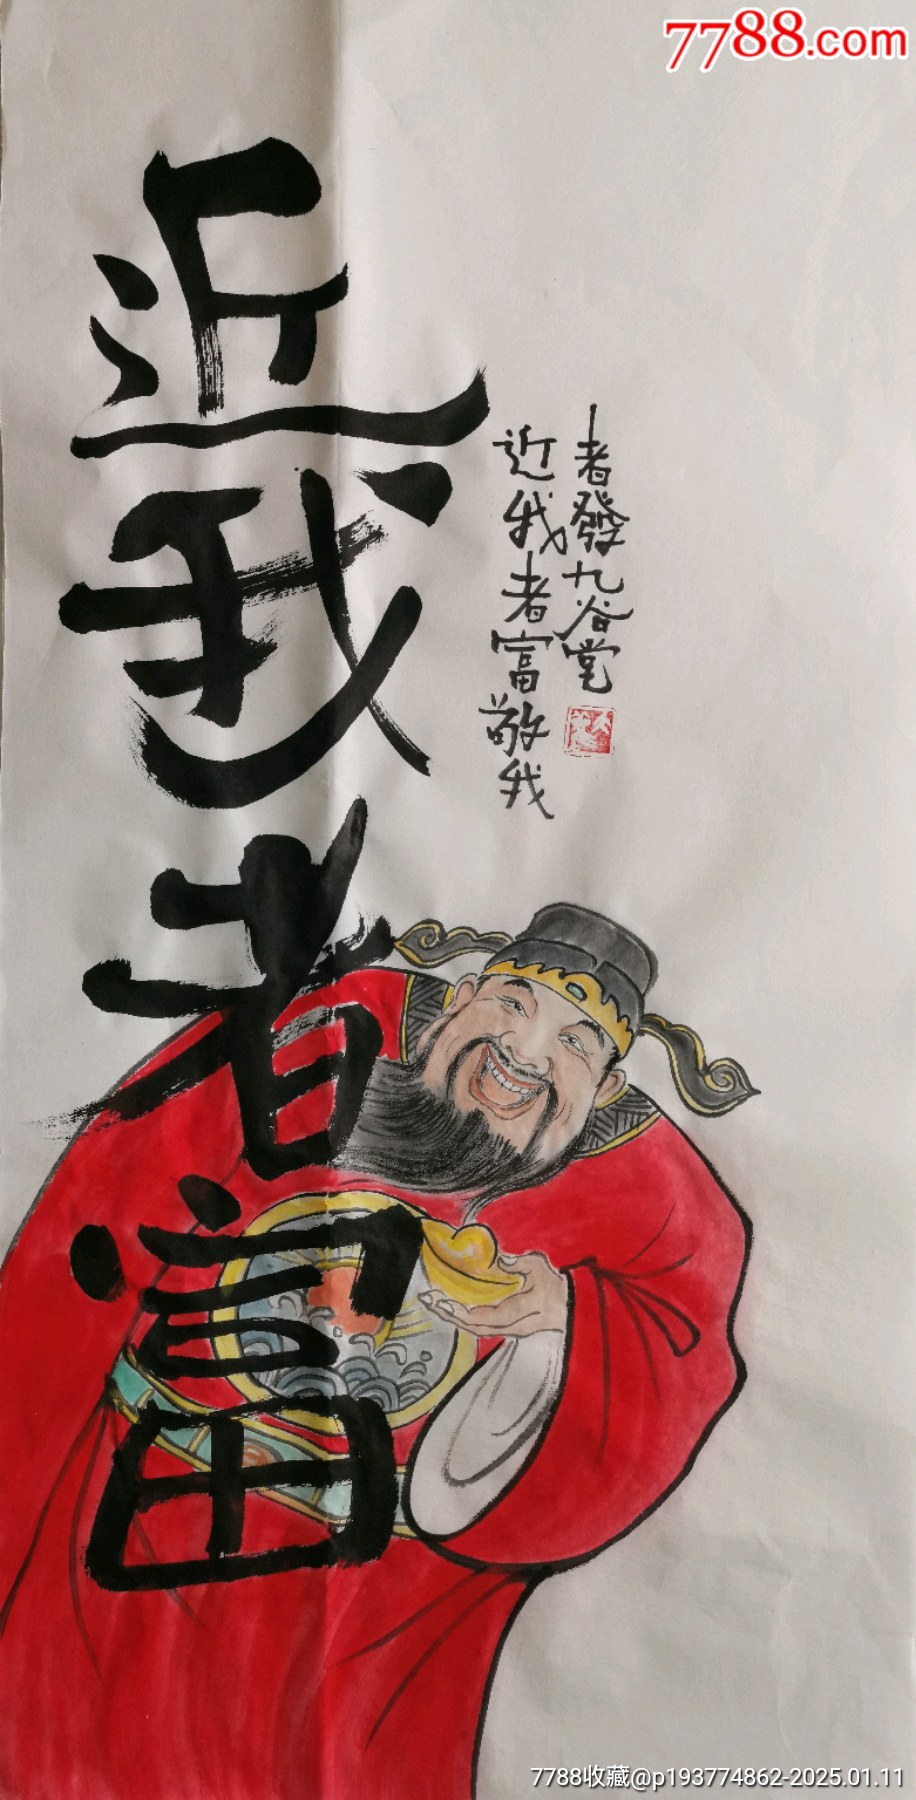 7788.com
近我者富
近我者富敬我
者發九谷堂
7788收藏@p193774862-2025.01.11